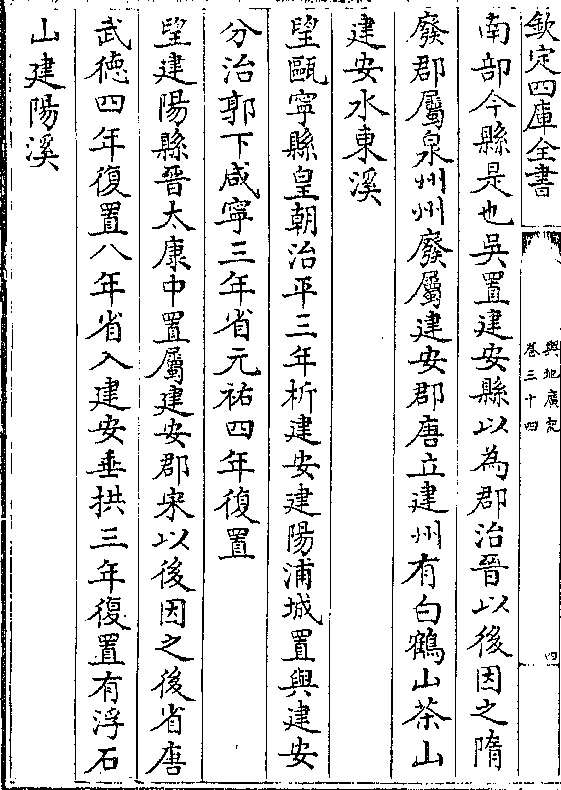 欽定四庫全書
輿地廣記
卷三十四
四
南部今縣是也吳置建安縣以為郡治晉以後因之隋
廢郡屬泉州州廢屬建安郡唐立建州有白鶴山茶山
建安水東溪
望甌寧縣皇朝治平三年析建安建陽浦城置與建安
分治郭下咸寧三年省元祐四年復置
望建陽縣晉太康中置屬建安郡宋以後因之後省唐
武德四年復置八年省入建安垂拱三年復置有浮石
山建陽溪